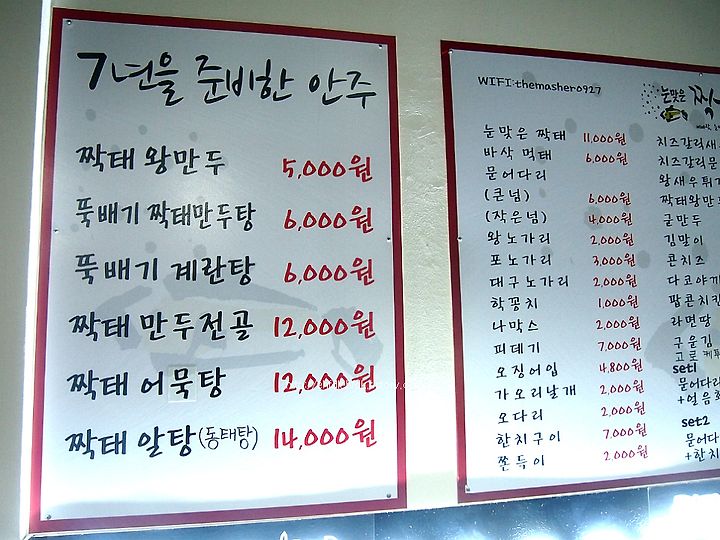 7년을 준비한 안주
짝태 왕만두 5,000원
뚝배기 짝태만두탕 6,000원
뚝배기 계란탕 6,000원
짝태 만두전골 12,000원
짝태 어묵탕 12,000원
짝태 알탕(동태탕) 14,000원
WIFI:themasher0927
눈맞은
눈맞은 짝태 11,000원
바삭 먹태 6,000원
문어다리
(큰넘) 6,000원
(작은넘) 4,000원
왕노가리 2,000원
포노가리 3,000원
대구노가리 2,000원
학꽁치 1,000원
나막스 2,000원
피데기 7,000원
오징어입 4,800원
가오리날개 2,000원
오다리 2,000원
한치구이 7,000원
쫀득이 2,000원
치즈갈릭새우
치즈갈릭문
왕새우튀
짝태왕만
군만두
김말이
콘치즈
다코야끼
팝콘치킨
라면땅
구운김
고로케
set1
문어다리
+얼음황
set2
문어다
+한치